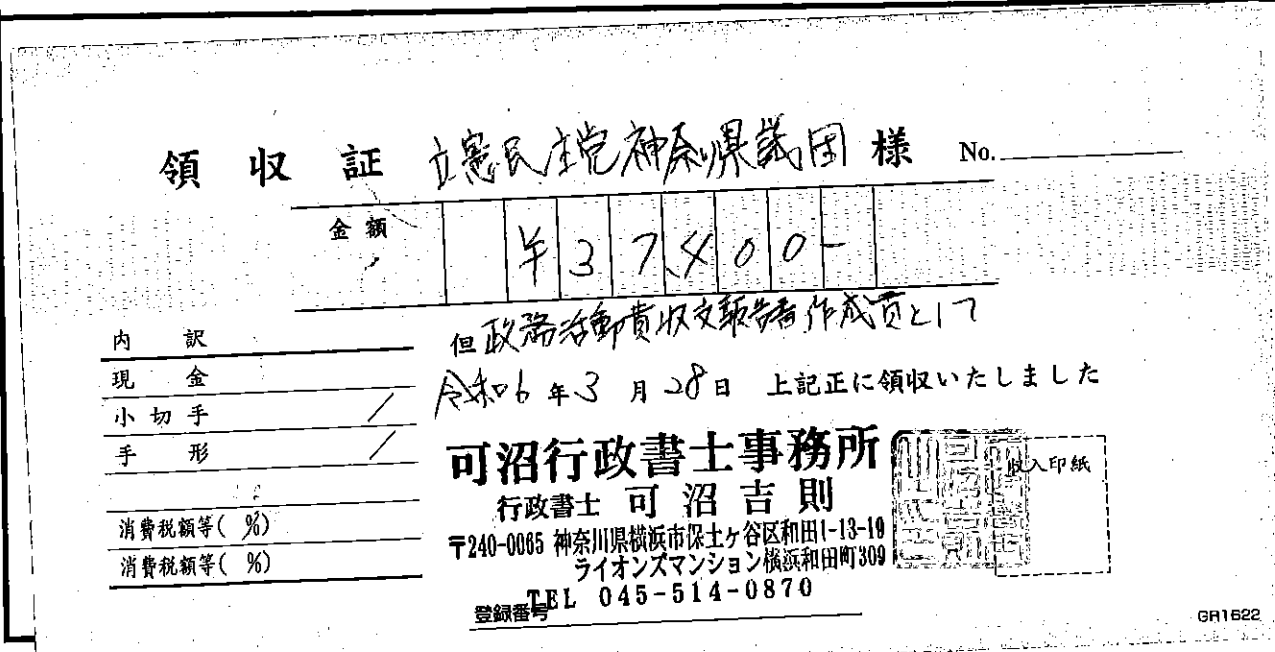 領収証 立憲民主党神奈川県議団 様 No.
金額 ¥37,400-
但 政務活動費収支報告書作成費として
令和6年3月28日 上記正に領収いたしました
内訳
現金
小切手 /
手形 /
消費税額等( %)
消費税額等( %)
可沼行政書士事務所
行政書士 可沼吉則
〒240-0065 神奈川県横浜市保土ヶ谷区和田1-13-19
ライオンズマンション横浜和田町309
TEL 045-514-0870
登録番号
収入印紙
GR1622